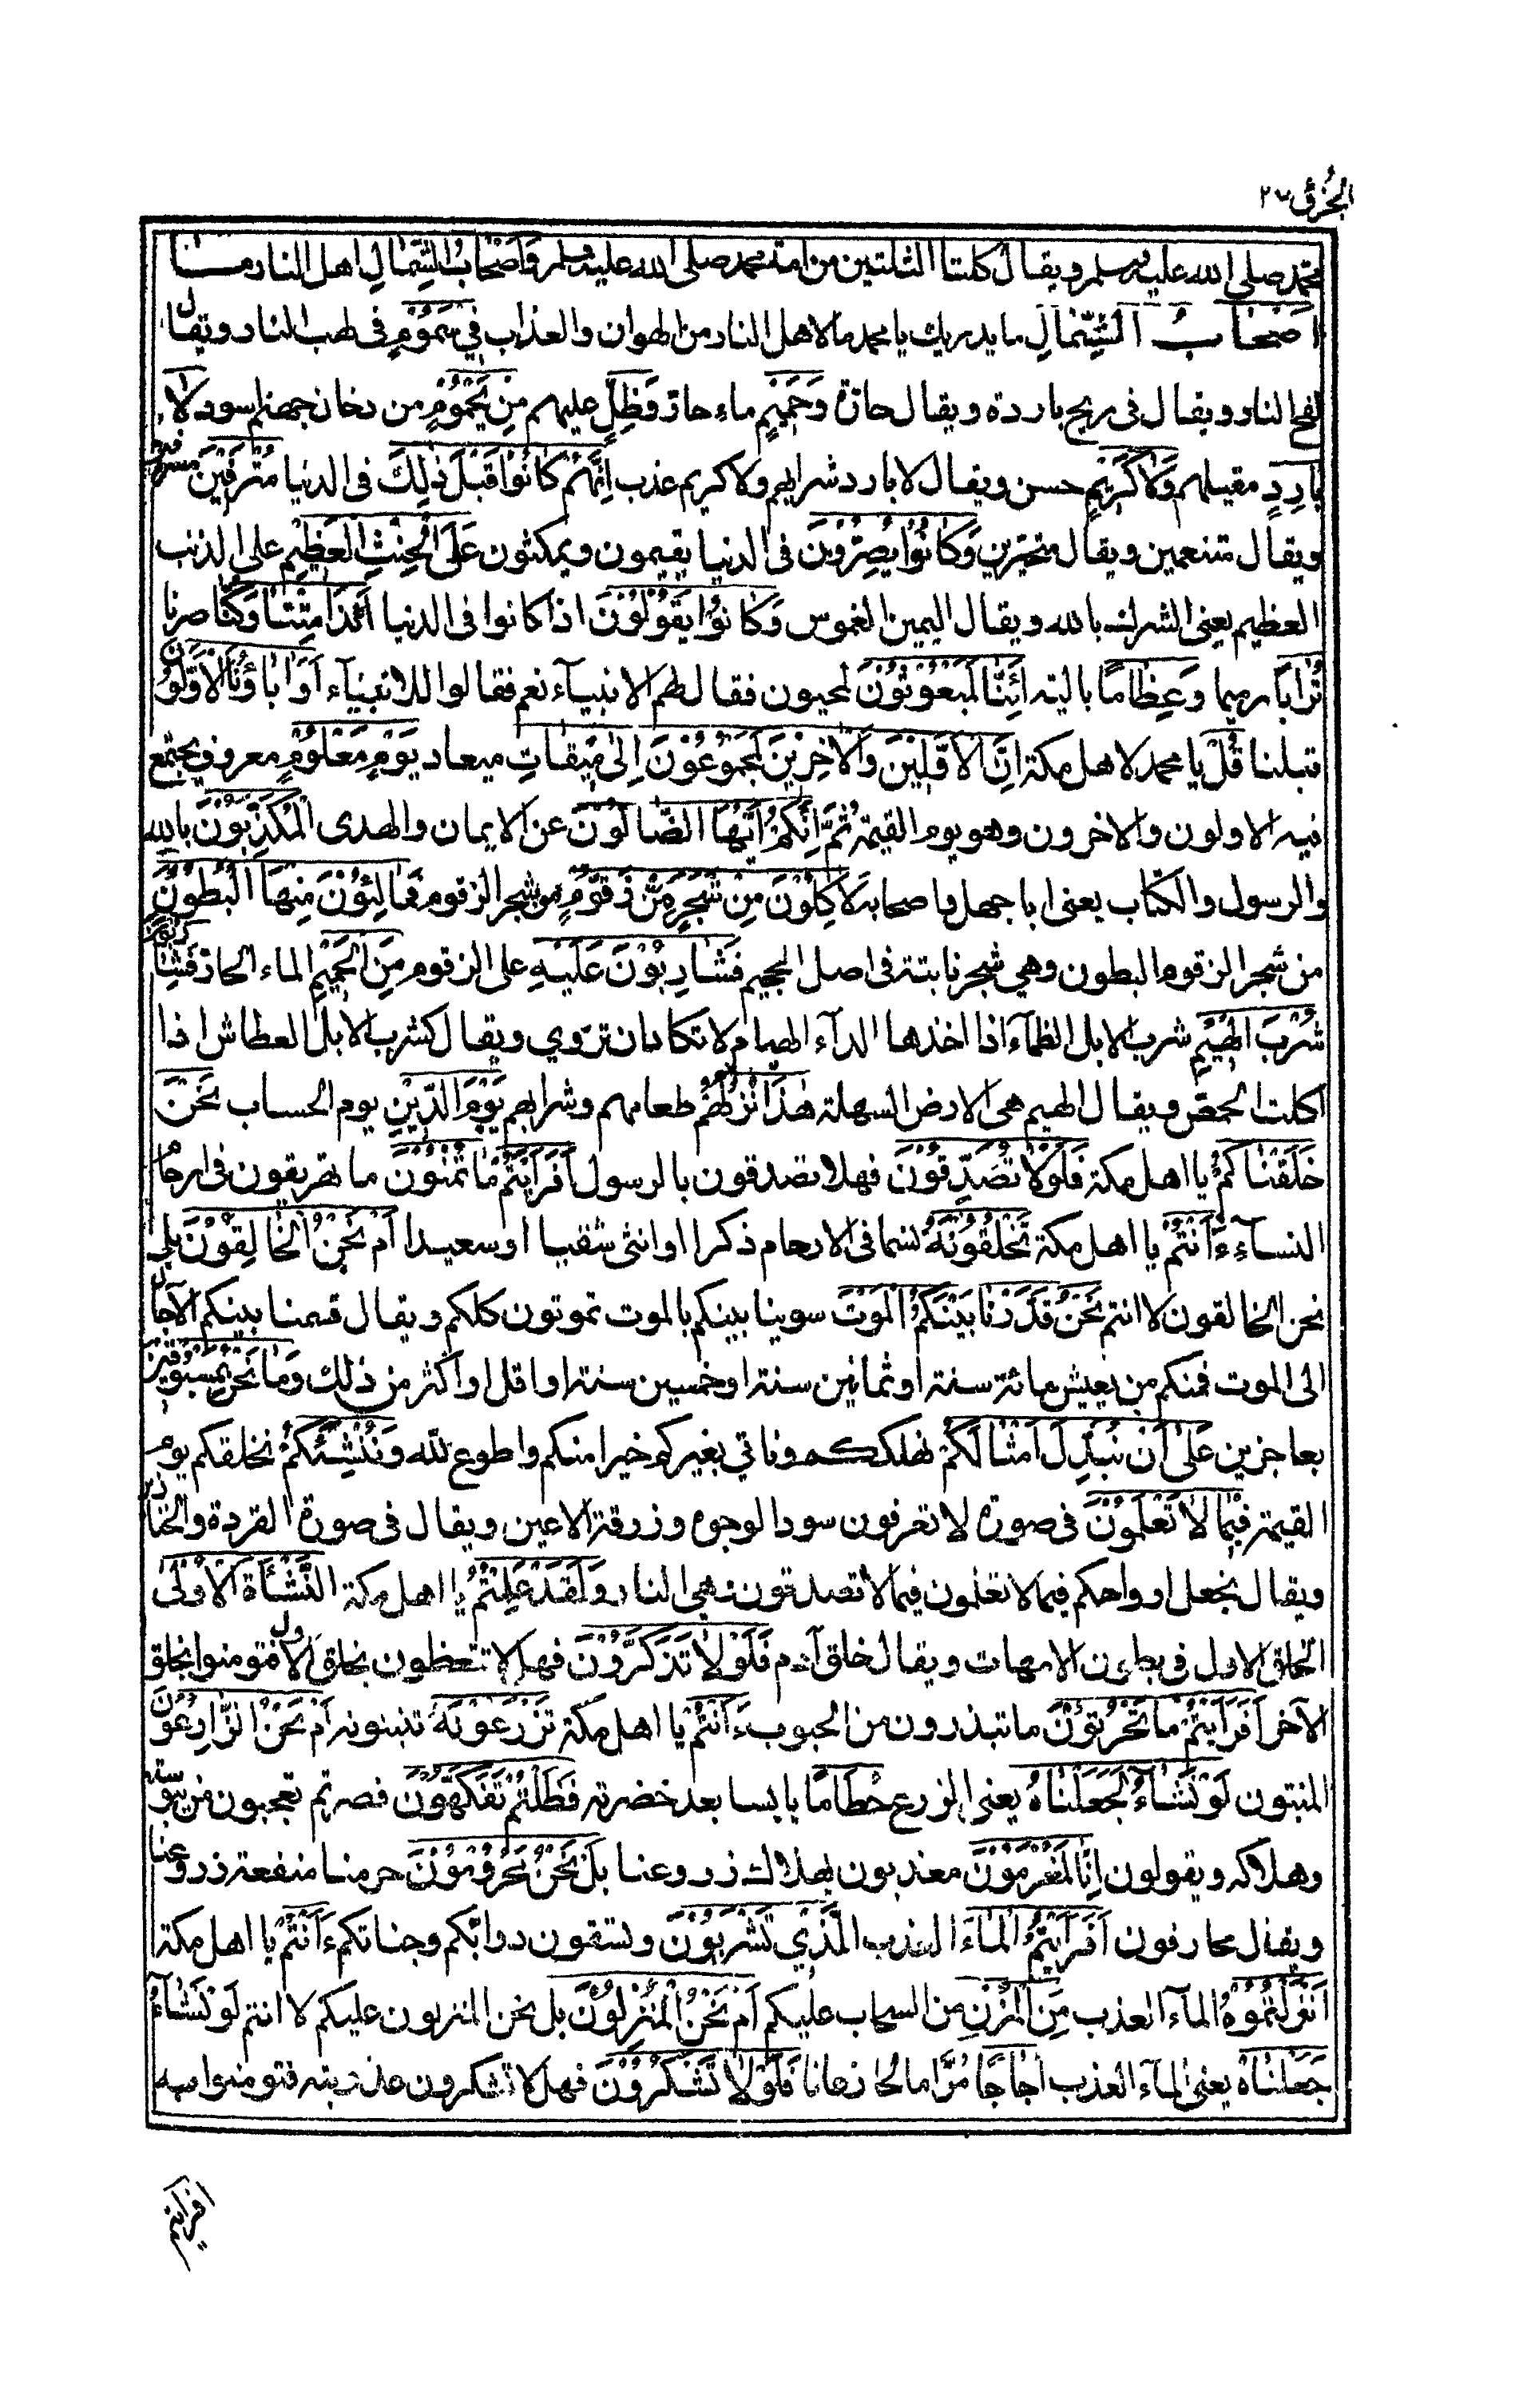 الجزؤ ٢٧
محمد صلى الله عليه وسلم ويقال كلتا الثلتين من امة محمد صلى الله عليه وسلم وَاَصْحَابُ الشِّمَالِ اهل النار مــا
اَصْحَابُ الشِّمَالِ ما يدريك يا محمد ما لاهل النار من الهوان والعذاب فِيْ سَمُوْمٍ فى لهب النار ويقال
لفح النار ويقال فى ريح باردة ويقال حارّة وَحَمِيْمٍ ماء حارّ وَظِلٍّ عليهم مِنْ يَحْمُوْمٍ من دخان جهنم اسود لَا
بَارِدٍ مقيلهم وَلَا كَرِيْمٍ حسن ويقال لا بارد شرابهم ولا كريم عذب اِنَّهُمْ كَانُوْا قَبْلَ ذٰلِكَ فى الدنيا مُتْرَفِيْنَ مسرفين
ويقال متنعمين ويقال متجبرين وَكَانُوْا يُصِرُّوْنَ فى الدنيا يقيمون ويمكثون عَلَى الْحِنْثِ الْعَظِيْمِ على الذنب
العظيم يعنى الشرك بالله ويقال اليمين الغموس وَكَانُوْا يَقُوْلُوْنَ اذا كانوا فى الدنيا اَئِذَا مِتْنَا وَكُنَّا صرنا
تُرَابًا رميما وَعِظَامًا بالية اَئِنَّا لَمَبْعُوْثُوْنَ لمحيون فقال لهم الانبياء نعم فقالوا للانبياء اَوَاٰبَاؤُنَا الْاَوَّلُوْنَ
قبلنا قُلْ يا محمد لاهل مكة اِنَّ الْاَوَّلِيْنَ وَالْاٰخِرِيْنَ لَمَجْمُوْعُوْنَ اِلٰى مِيْقَاتِ ميعاد يَوْمٍ مَعْلُوْمٍ معروف يجتمع
فيه الاولون والاخرون وهو يوم القيمة ثُمَّ اِنَّكُمْ اَيُّهَا الضَّالُّوْنَ عن الايمان والهدى الْمُكَذِّبُوْنَ بالله
والرسول والكتاب يعنى ابا جهل واصحابه لَاٰكِلُوْنَ مِنْ شَجَرٍ مِّنْ زَقُّوْمٍ من شجر الزقوم فَمَالِئُوْنَ مِنْهَا الْبُطُوْنَ
من شجر الزقوم البطون وهي شجر نابتة فى اصل الجحيم فَشَارِبُوْنَ عَلَيْهِ على الزقوم مِنَ الْحَمِيْمِ الماء الحارّ فَشَارِبُوْنَ
شُرْبَ الْهِيْمِ شرب الابل الظماء اذا اخذها الداء الهيام لا تكاد ان تروي ويقال كشرب الابل العطاش اذا
اكلت الحمض ويقال الهيم هى الارض السهلة هٰذَا نُزُلُهُمْ طعامهم وشرابهم يَوْمَ الدِّيْنِ يوم الحساب نَحْنُ
خَلَقْنَاكُمْ يا اهل مكة فَلَوْلَا تُصَدِّقُوْنَ فهلا تصدقون بالرسول اَفَرَاَيْتُمْ مَا تُمْنُوْنَ ما تهريقون فى ارحام
النساء ءَاَنْتُمْ يا اهل مكة تَخْلُقُوْنَهُ نسما فى الارحام ذكرا او انثى شقيا او سعيدا اَمْ نَحْنُ الْخَالِقُوْنَ بلى
نحن الخالقون لا انتم نَحْنُ قَدَّرْنَا بَيْنَكُمُ الْمَوْتَ سوينا بينكم بالموت تموتون كلكم ويقال قسمنا بينكم الآجال
الى الموت فمنكم من يعيش مائة سنة او ثمانين سنة او خمسين سنة او اقل او اكثر من ذلك وَمَا نَحْنُ بِمَسْبُوْقِيْنَ
بعاجزين عَلٰى اَنْ نُبَدِّلَ اَمْثَالَكُمْ نهلككم وناتي بغيركم خيرا منكم واطوع لله وَنُنْشِئَكُمْ نخلقكم يوم
القيمة فِيْمَا لَا تَعْلَمُوْنَ فى صورة لا تعرفون سود الوجوه وزرقة الاعين ويقال فى صورة القردة والخنازير
ويقال نجعل ارواحكم فيما لا تعلمون فيما لا تصدقون وهي النار وَلَقَدْ عَلِمْتُمْ يا اهل مكة النَّشْأَةَ الْاُوْلٰى
الخلق الاول فى بطون الامهات ويقال خلق آدم فَلَوْلَا تَذَكَّرُوْنَ فهلا تتعظون بخلق الاول فتومنوا بخلق
الآخر اَفَرَاَيْتُمْ مَا تَحْرُثُوْنَ ما تبذرون من الحبوب ءَاَنْتُمْ يا اهل مكة تَزْرَعُوْنَهُ تنبتونه اَمْ نَحْنُ الزَّارِعُوْنَ
المنبتون لَوْ نَشَاءُ لَجَعَلْنَاهُ يعنى الزرع حُطَامًا يابسا بعد خضرته فَظَلْتُمْ تَفَكَّهُوْنَ فصرتم تعجبون من يبوسته
وهلاكه ويقولون اِنَّا لَمُغْرَمُوْنَ معذبون بهلاك زروعنا بَلْ نَحْنُ مَحْرُوْمُوْنَ حرمنا منفعة زروعنا
ويقال محارفون اَفَرَاَيْتُمُ الْمَاءَ العذب الَّذِيْ تَشْرَبُوْنَ وتسقون دوابكم وجناتكم ءَاَنْتُمْ يا اهل مكة
اَنْزَلْتُمُوْهُ الماء العذب مِنَ الْمُزْنِ من السحاب عليكم اَمْ نَحْنُ الْمُنْزِلُوْنَ بل نحن المنزلون عليكم لا انتم لَوْ نَشَاءُ
جَعَلْنَاهُ يعنى الماء العذب اُجَاجًا مُرًّا مالحا زعاقا فَلَوْلَا تَشْكُرُوْنَ فهلا تشكرون عذوبته فتومنوا به
افرايتم